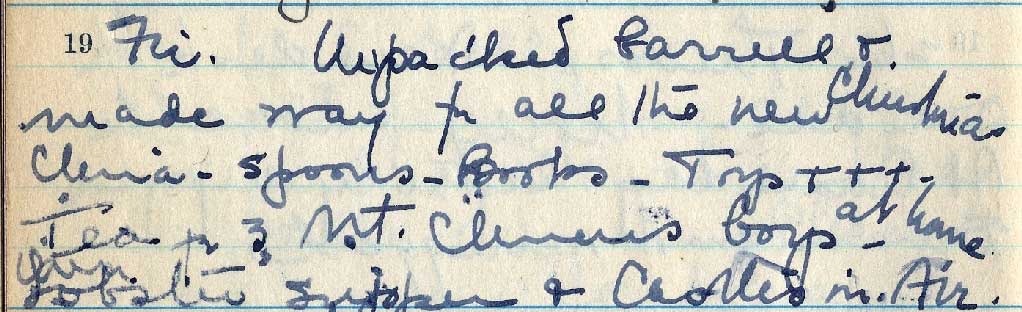 19 Fri. Unpacked barrels &
made way for all the new Christmas
China - Spoons - Books - Toys + + + -
Tea for 3 Mt. Clemens boys - at home
Lobster supper & Castles in Air.